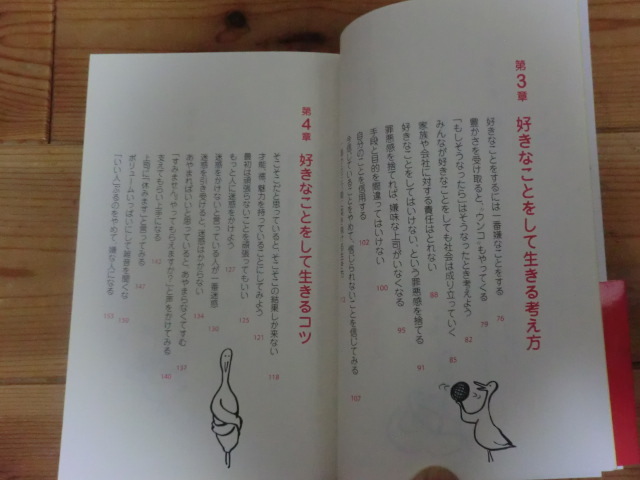 第3章 好きなことをして生きる考え方
好きなことをするには一番嫌なことをする 76
豊かさを受け取ると、「ウンコ」もやってくる 79
「もしそうなったら」はそうなったとき考えよう 82
みんなが好きなことをしても社会は成り立っていく 85
家族や会社に対する責任はとれない 88
好きなことをしてはいけない、という罪悪感を捨てる 91
罪悪感を捨てれば、嫌味な上司がいなくなる 95
手段と目的を間違ってはいけない 100
自分のことを信用する 102
ことをやめて、信じられないことを信じてみる 107
第4章 好きなことをして生きるコツ
そこそこだと思っていると、そこそこの結果しか来ない 118
才能、徳、魅力を持っていることにしてみよう 121
最初は頑張らないことを頑張ってもいい 125
もっと人に迷惑をかけよう 127
迷惑をかけないと思っている人が一番迷惑 130
迷惑を引き受けると、迷惑はかからない 134
あやまればいいと思っていると、あやまらなくてすむ 137
「すみませ〜ん。やってもらえますか?」と声をかけてみる 140
支えてもらい上手になる 142
上司に「休みます」と言ってみる 147
ボリュームいっぱいにして雑音を聞くな 150
「いい人」になるのをやめて、嫌な人になる 153